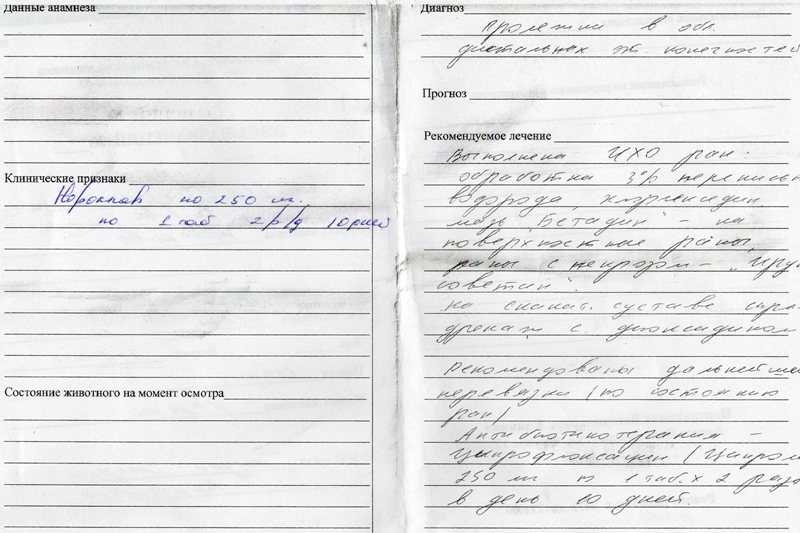 Данные анамнеза
Клинические признаки
Нороклав по 250 мг.
по 1 таб 2 р/д 10 дней
Состояние животного на момент осмотра
Диагноз
Пролежни в обл.
дистальных отд. конечностей
Прогноз
Рекомендуемое лечение
Выполнена ПХО ран:
обработка 3% перекисью
водорода, хлоргексидин
мазь "Бетадин" - на
поверхностные раны,
раны с некрозом -
на скакат. суставе
дренаж с диоксидином
Рекомендованы дальнейшие
перевязки (по состоянию
ран)
Антибиотикотерапия -
ципрофлоксацин (Ципро
250 мг по 1 таб. х 2 раза
в день 10 дней.